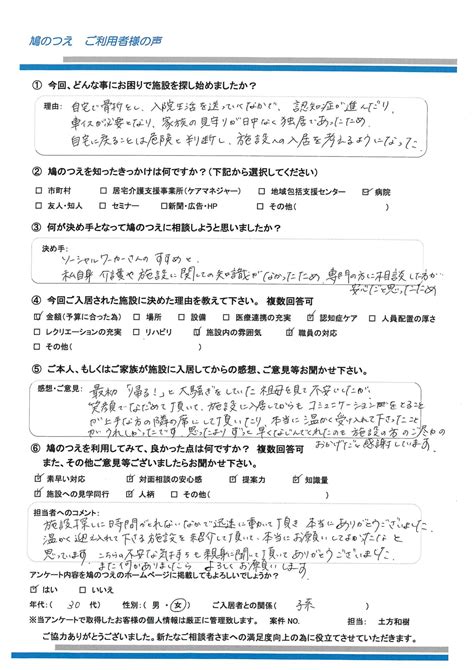 鳩のつえ　ご利用者様の声
① 今回、どんな事にお困りで施設を探し始めましたか？
理由： 自宅で骨折をし、入院生活を送っていくなかで、認知症が進んだり、
車イスが必要となり、家族の見守りが日中なく独居であったため、
自宅に戻ることは危険と判断し、施設への入居を考えるようになった。
② 鳩のつえを知ったきっかけは何ですか？（下記から選択してください）
□ 市町村　□ 居宅介護支援事業所（ケアマネジャー）　□ 地域包括支援センター　☑ 病院
□ 友人・知人　□ セミナー　□新聞・広告・HP　□ その他（　）
③ 何が決め手となって鳩のつえに相談しようと思いましたか？
決め手：
ソーシャルワーカーさんのすすめと、
私自身 介護や施設に関しての知識がなかったため、専門の方に相談した方が
安心だと思ったため
④ 今回ご入居された施設に決めた理由を教えて下さい。 複数回答可
☑ 金額（予算に合った為）　□ 場所　□ 設備　□ 医療連携の充実　☑ 認知症ケア　□ 人員配置の厚さ
□ レクリエーションの充実　□ リハビリ　☑ 施設内の雰囲気　☑ 職員の対応
□ その他（　）
⑤ ご本人、もしくはご家族が施設に入居してからの感想、ご意見等お聞かせ下さい。
感想・ご意見： 最初「帰る！」と大騒ぎをしていた祖母を見て不安でしたが、
笑顔でなだめて頂いて、施設に入居してからもコミュニケーションをとること
が上手な方の隣の席にして頂いたり、本当に温かく受け入れて下さったこと
がうれしかったです。思ったよりずっと早くなじんでくれたのも施設の方のご尽力の
おかげだと感謝しています。
⑥ 鳩のつえを利用してみて、良かった点は何ですか？ 複数回答可
また、その他ご意見等ございましたらお聞かせ下さい。
☑ 素早い対応　☑ 対面相談の安心感　☑ 提案力　☑ 知識量
☑ 施設への見学同行　☑ 人柄　□ その他（　）
担当者へのコメント：
施設探しに時間がとれないなかで迅速に動いて頂き 本当にありがとうございました。
温かく迎え入れて下さる施設を紹介して頂いて、本当にお願いしてよかったなと
思っています。こちらの不安な気持ちも親身に聞いて頂いてありがとうございました。
また何かありましたら よろしくお願いします。
アンケート内容を鳩のつえのホームページに掲載してもよろしいでしょうか？
☑ はい　□ いいえ
年代：（ 30 代）　性別：（ 男 ・ 女 ）　ご入居者との関係（ 孫 ）
※当アンケートで取得したお客様の個人情報は厳正に管理致します。　案件 NO.　担当： 土方和樹
ご協力ありがとうございました。新たなご相談者さまへの満足度向上の為に役立てさせていただきます。